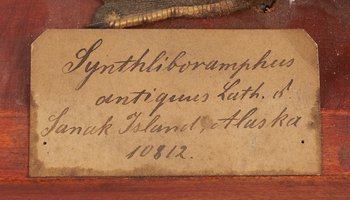 Synthliboramphus
antiquus Lath. ♂
Sanak Island, Alaska
10812.